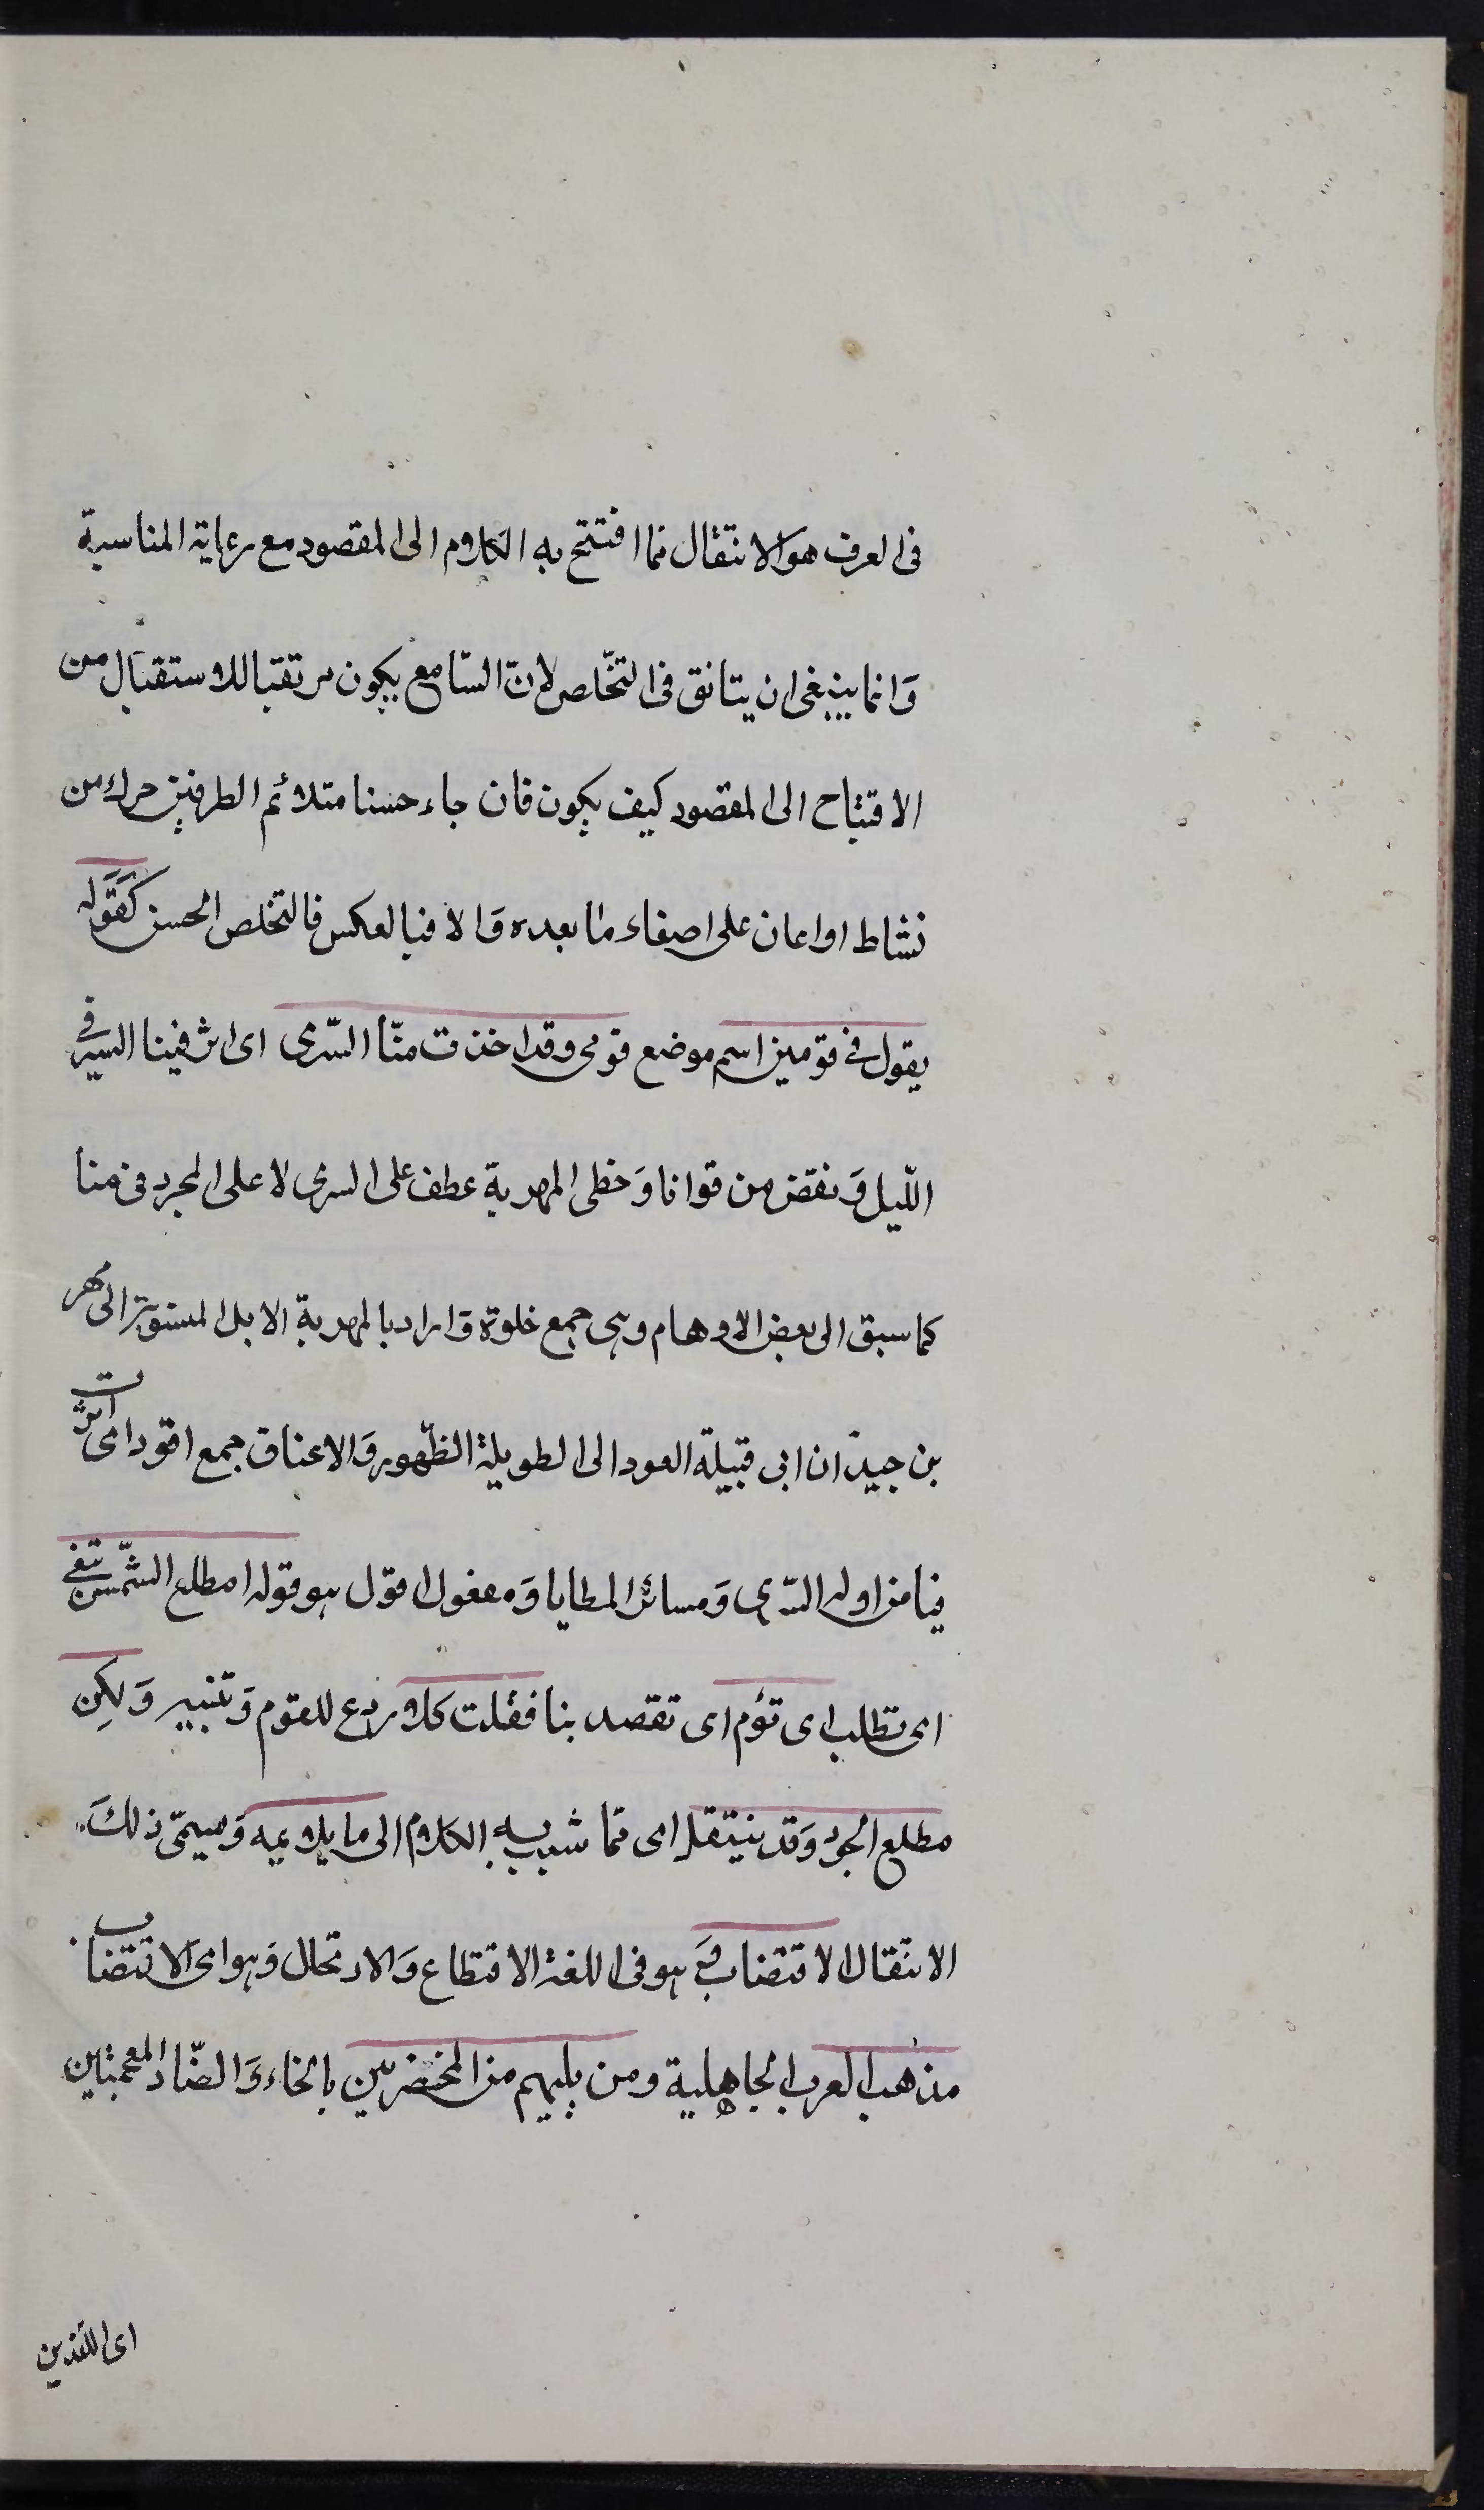 فى العرف هو الانتقال مما افتتح به الكلام الى المقصود مع رعاية المناسبة
وَانما ينبغى ان يتانق فى التخّلص لانّ السّامع يكون مرتقبا للاستقبال من
الافتتاح الى المقصود كيف يكون فان جاء حسنا متلائم الطرفين حرك من
نشاط او اعان على اصغاء ما بعده وَالا فبالعكس فالتخلص الحسن كَقَوَله
يقول فى قومين اسم موضع قومى وقد اخذت منّا السّرى اى اثر فينا السير فى
اللّيل وَنقض من قوانا وَخطى المهرية عطف على السرى لا على المجرد فى منا
كما سبق الى بعض الاوهام وهى جمع خلوة وَاراد بالمهرية الابل المنسوبة الى مهر
بن جيدَان ابى قبيلة العود الى الطويلة الظّهور وَالاعناق جمع اقود اى اثرت
فينا مزاوله السّرى وَمسائر المطايا وَمفعول اقول هو قوله امطلع الشّمس تبغى
اى تطلب اى تؤم اى تقصد بنا فقلت كلا ردع للقوم وَتنبيه وَلكِن
مطلع الجود وَقد ينتقل اى ممّا شبب به الكلام الى ما يلايمه وَيسمّى ذلكَ
الانتقال الاقتضاب وَهو فى اللغة الاقتطاع وَالارتحال وَهو اى الاقتضاب
مذهب العرب الجاهلية ومن يليهم من المخضرمين بالخاء وَالضّاد المعجمتين
اى اللذين